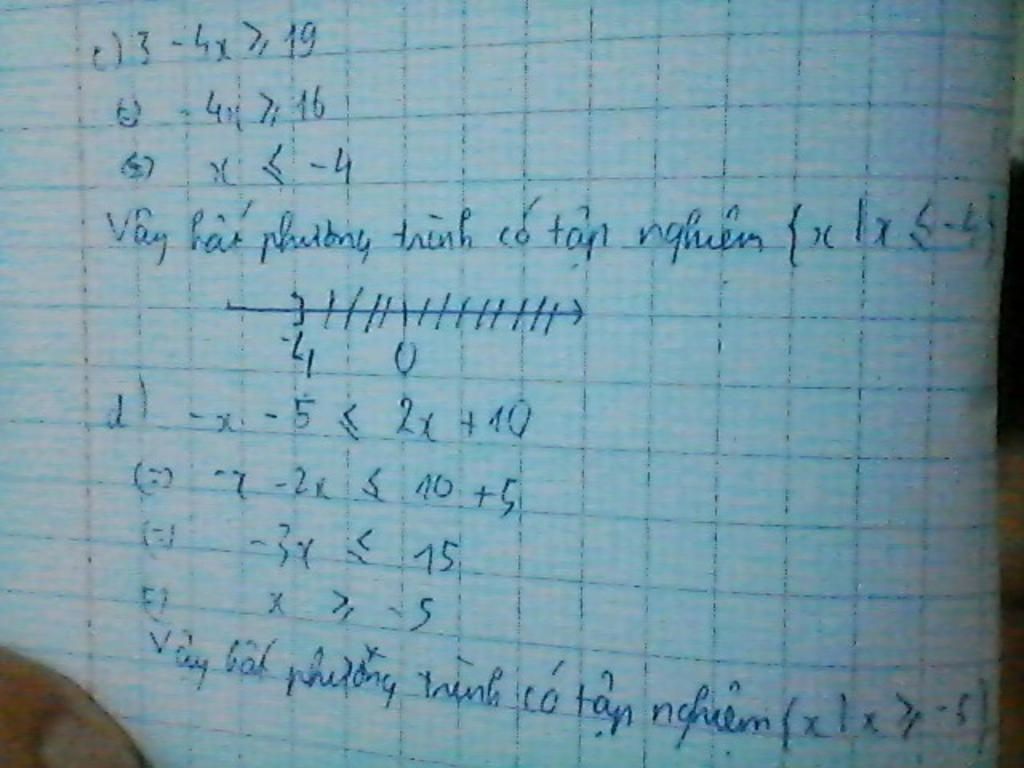 c) 3 - 4x ⩾ 19
⇔ - 4x ⩾ 16
⇔ x ⩽ -4
Vậy bất phương trình có tập nghiệm {x | x ⩽ -4}
-4 0
d) -x - 5 ⩽ 2x + 10
⇔ -x - 2x ⩽ 10 + 5
⇔ -3x ⩽ 15
⇔ x ⩾ -5
Vậy bất phương trình có tập nghiệm {x | x ⩾ -5}